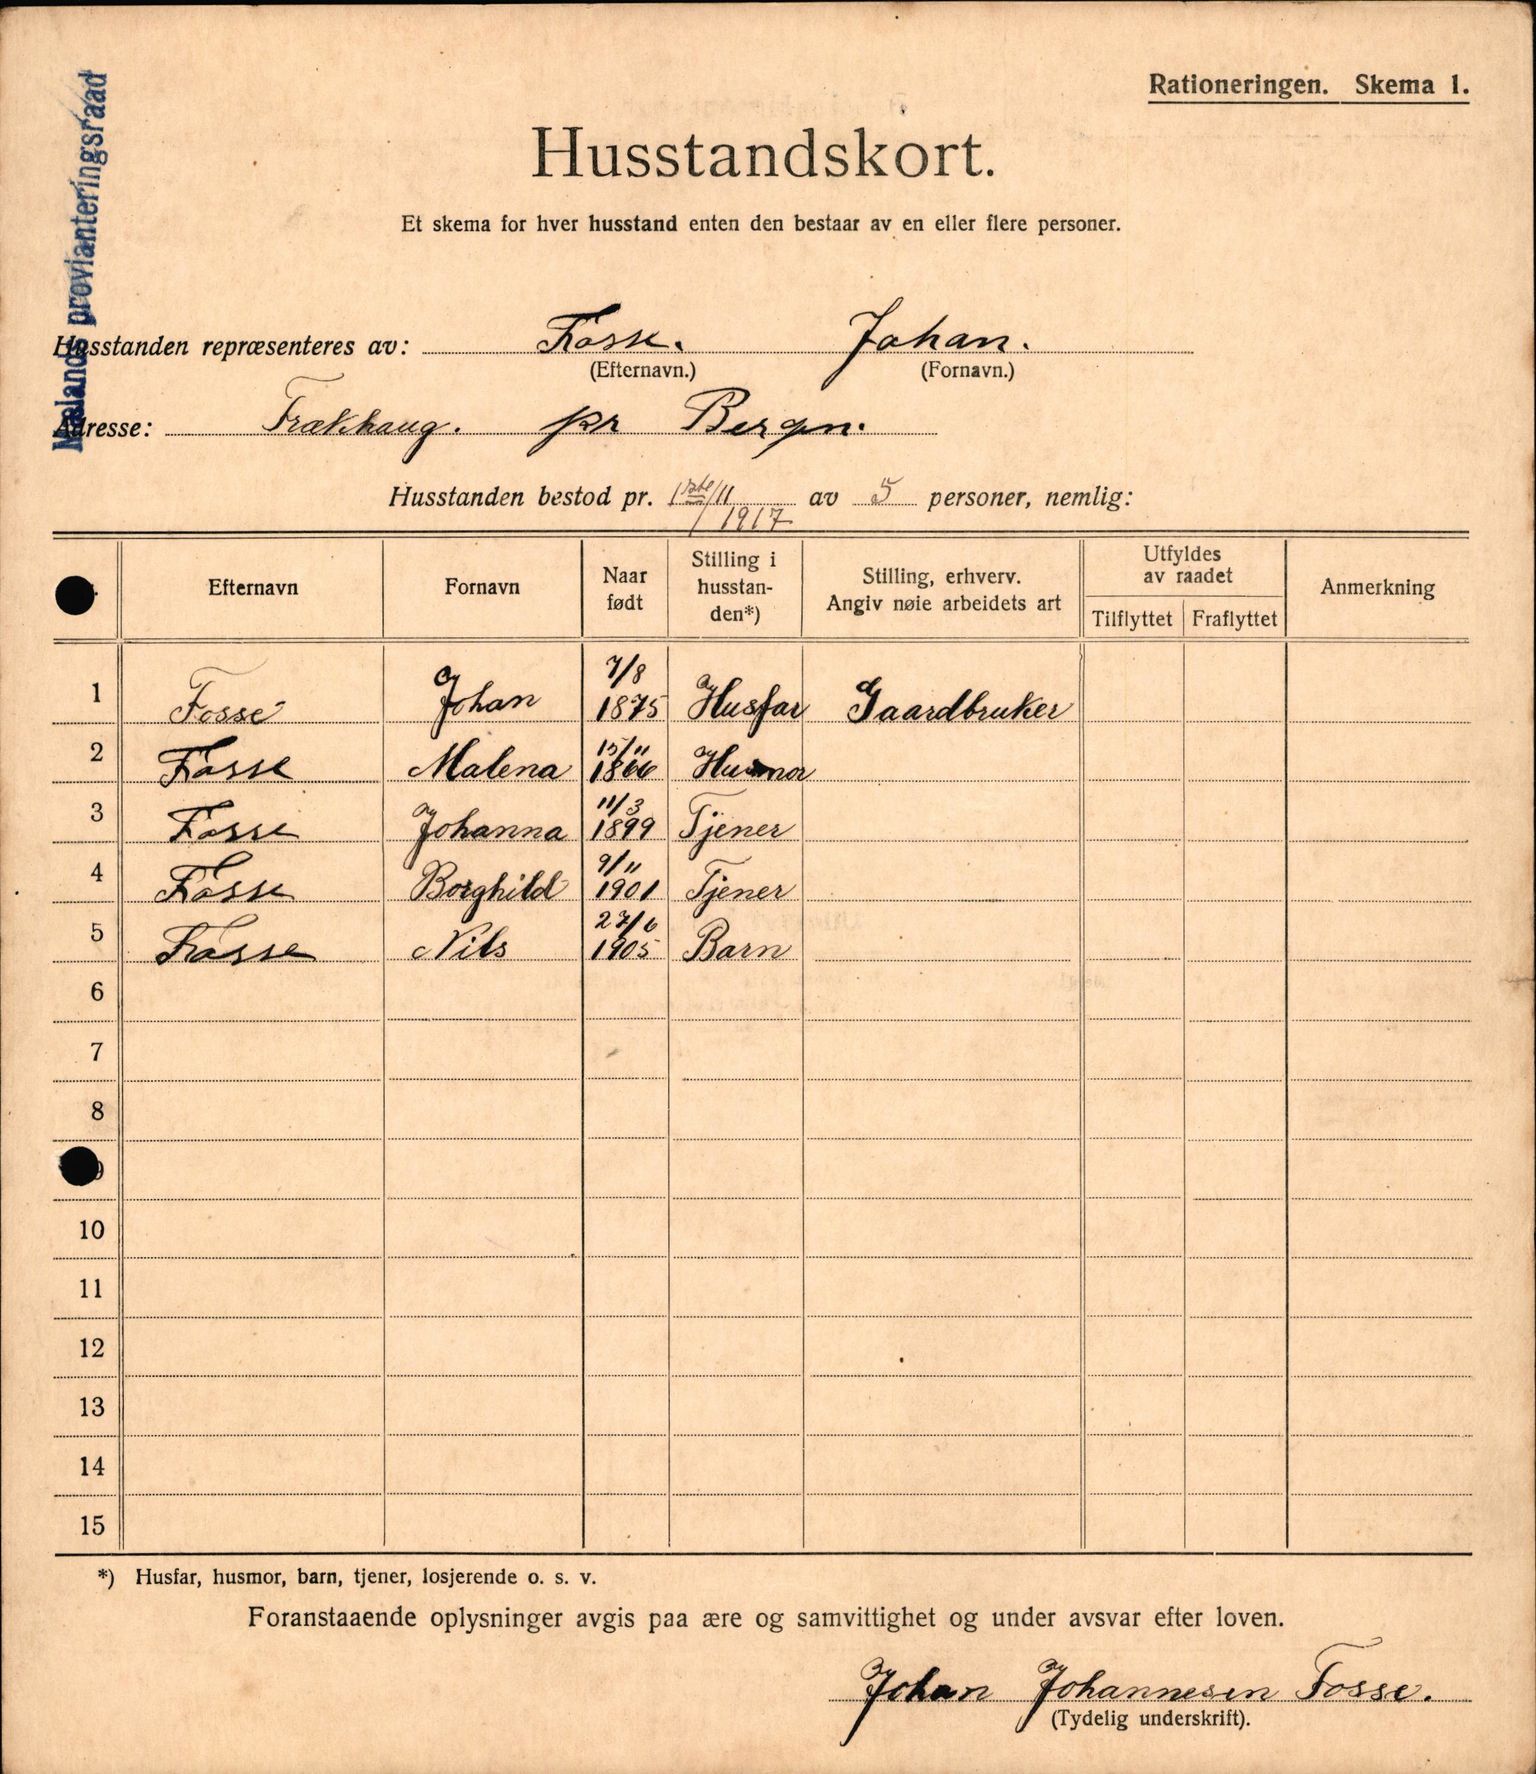 Mælands provianteringsraad
Rationeringen. Skema 1.
Husstandskort.
Et skema for hver husstand enten den bestaar av en eller flere personer.
Husstanden repræsenteres av: Fosse. Johan.
(Efternavn.) (Fornavn.)
Adresse: Frækhaug. pr Bergen.
Husstanden bestod pr. 1ste/11 1917 av 5 personer, nemlig:
Efternavn Fornavn Naar født Stilling i husstanden*) Stilling, erhverv. Angiv nøie arbeidets art Utfyldes av raadet Tilflyttet Fraflyttet Anmerkning
1 Fosse Johan 7/8 1875 Husfar Gaardbruker
2 Fosse Malena 15/11 1866 Husmor
3 Fosse Johanna 11/3 1899 Tjener
4 Fosse Borghild 9/11 1901 Tjener
5 Fosse Nils 27/6 1905 Barn
6
7
8
9
10
11
12
13
14
15
*) Husfar, husmor, barn, tjener, losjerende o. s. v.
Foranstaaende oplysninger avgis paa ære og samvittighet og under avsvar efter loven.
Johan Johannesen Fosse.
(Tydelig underskrift).